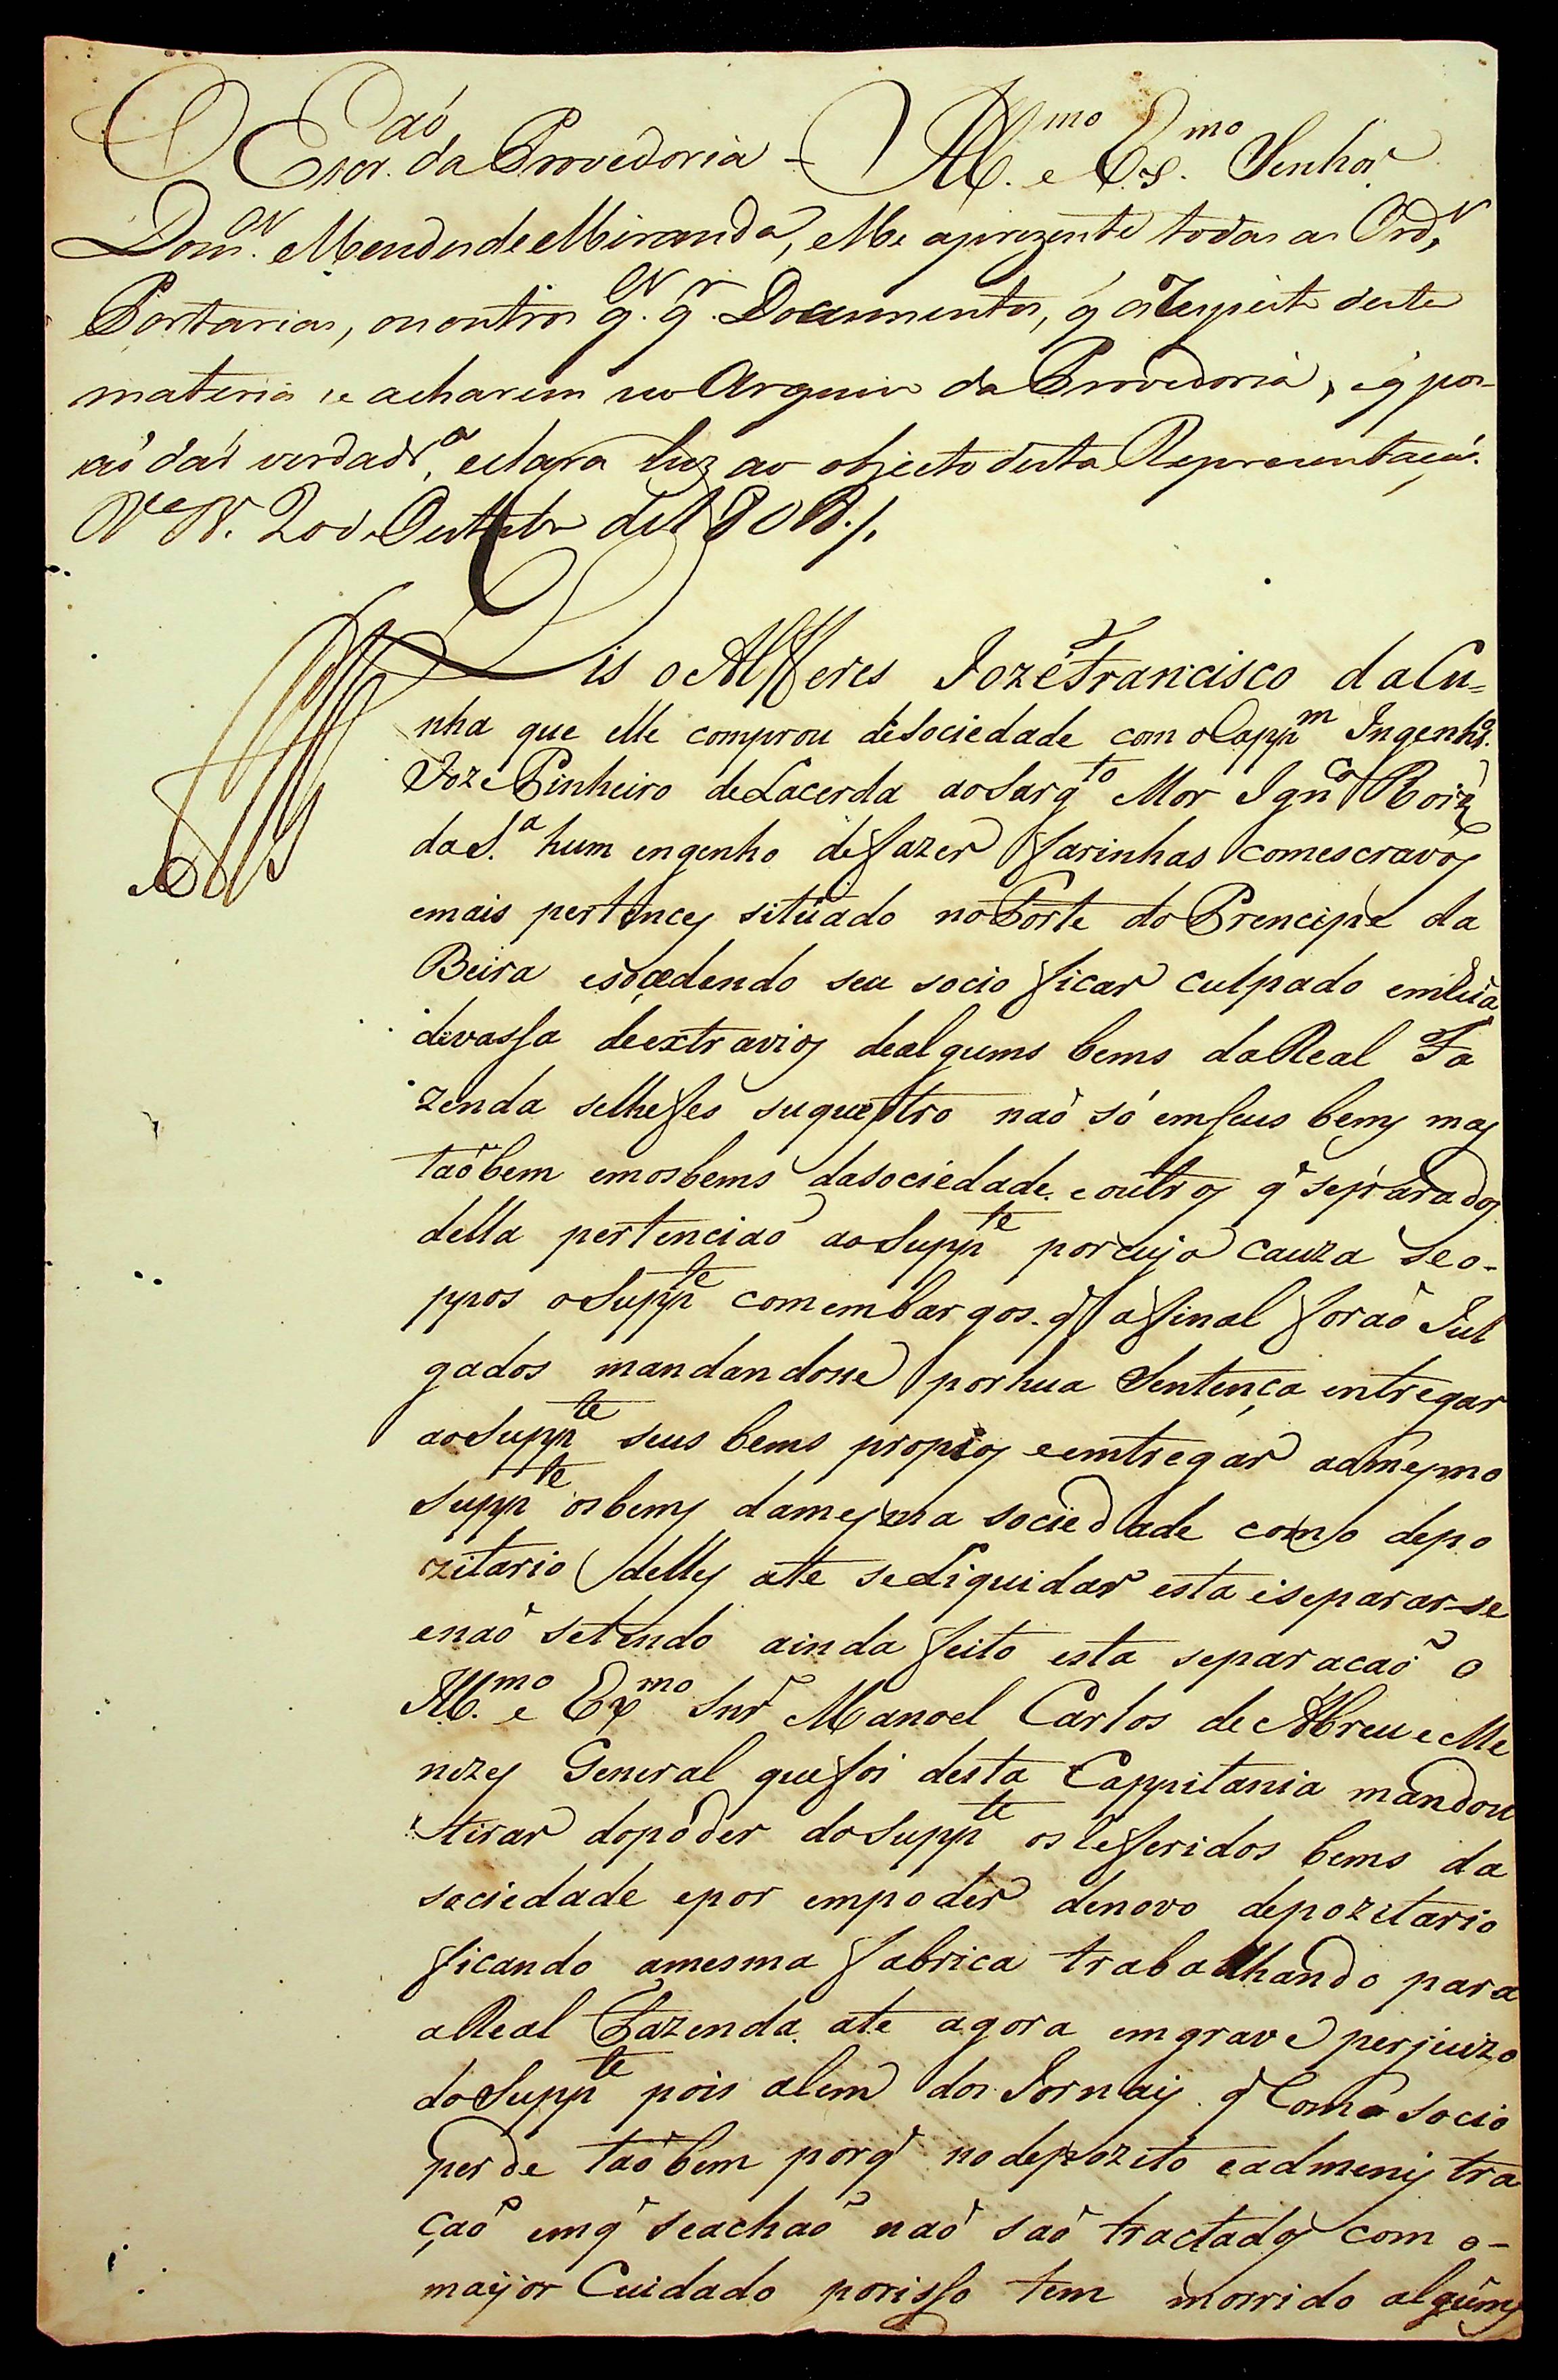 O Escr.aõ da Provedoria - Ill.mo e Ex.mo Senhor
Dom.os Mendes de Miranda, Me aprezente todas as Ord.s
Portarias, ou outros q.s q.r Documentos, q̃ a respeito desta
materia se acharem no Arquivo da Provedoria, e q̃ pos-
saõ dar verdadr.a, e clara luz ao objecto desta Reprezentaçaõ.
20 de Outubr.o de 1808./.
Dis o Alfferes Joze Francisco da Cu=
nha que elle comprou de Sociedade com o Capp.m Ingenhr.o
Joze Pinheiro de Lacerda ao Sarg.to Mor Ign.co Roiz
da S.a hum engenho de fazer farinhas com escravos
e mais pertences sitúado no Forte do Prencipe da
Beira e socedendo seu socio ficar culpado em húa
devassa de extravios de alguns bems da Real Fa
zenda se lhe fes suquestro naõ só em seus bens mas
taõbem em os bems da sociedade e outros q̃ separados
della pertenciaõ ao Supp.te por cuja cauza se o-
ppos o Supp.te com embargos. q̃ afinal foraõ Jul
gados mandandosse por hua Sentença entregar
ao Supp.te seus bems propios e emtregar ao mesmo
Supp.te os bens da mesma sociedade como depo
zitario delles ate se Liquidar esta e separar-se
e naõ se tendo ainda feito esta separacaõ o
Ill.mo e Ex.mo Snr̃ Manoel Carlos de Abreu e Me
nezes General que foi desta Cappitania mandou
tirar do poder do Supp.te os referidos bems da
sociedade e por em poder de novo depozitario
ficando a mesma fabrica trabalhando para
a Real Fazenda ate agora em grave perjuizo
do Supp.te pois alem dos Jornais q̃ Como socio
perde taõbem porq̃ no depozito e admenistra
çaõ em q̃ se achaõ naõ saõ tractados com o-
maýor Cuidado por isso tem morrido alguns